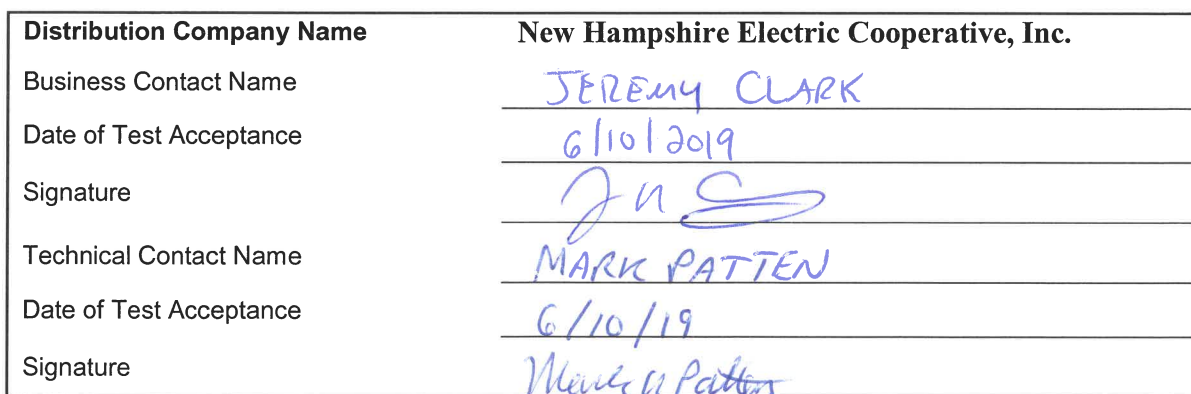 Distribution Company Name New Hampshire Electric Cooperative, Inc.
Business Contact Name JEREMY CLARK
Date of Test Acceptance 6/10/2019
Signature
Technical Contact Name MARK PATTEN
Date of Test Acceptance 6/10/19
Signature Mark Patten